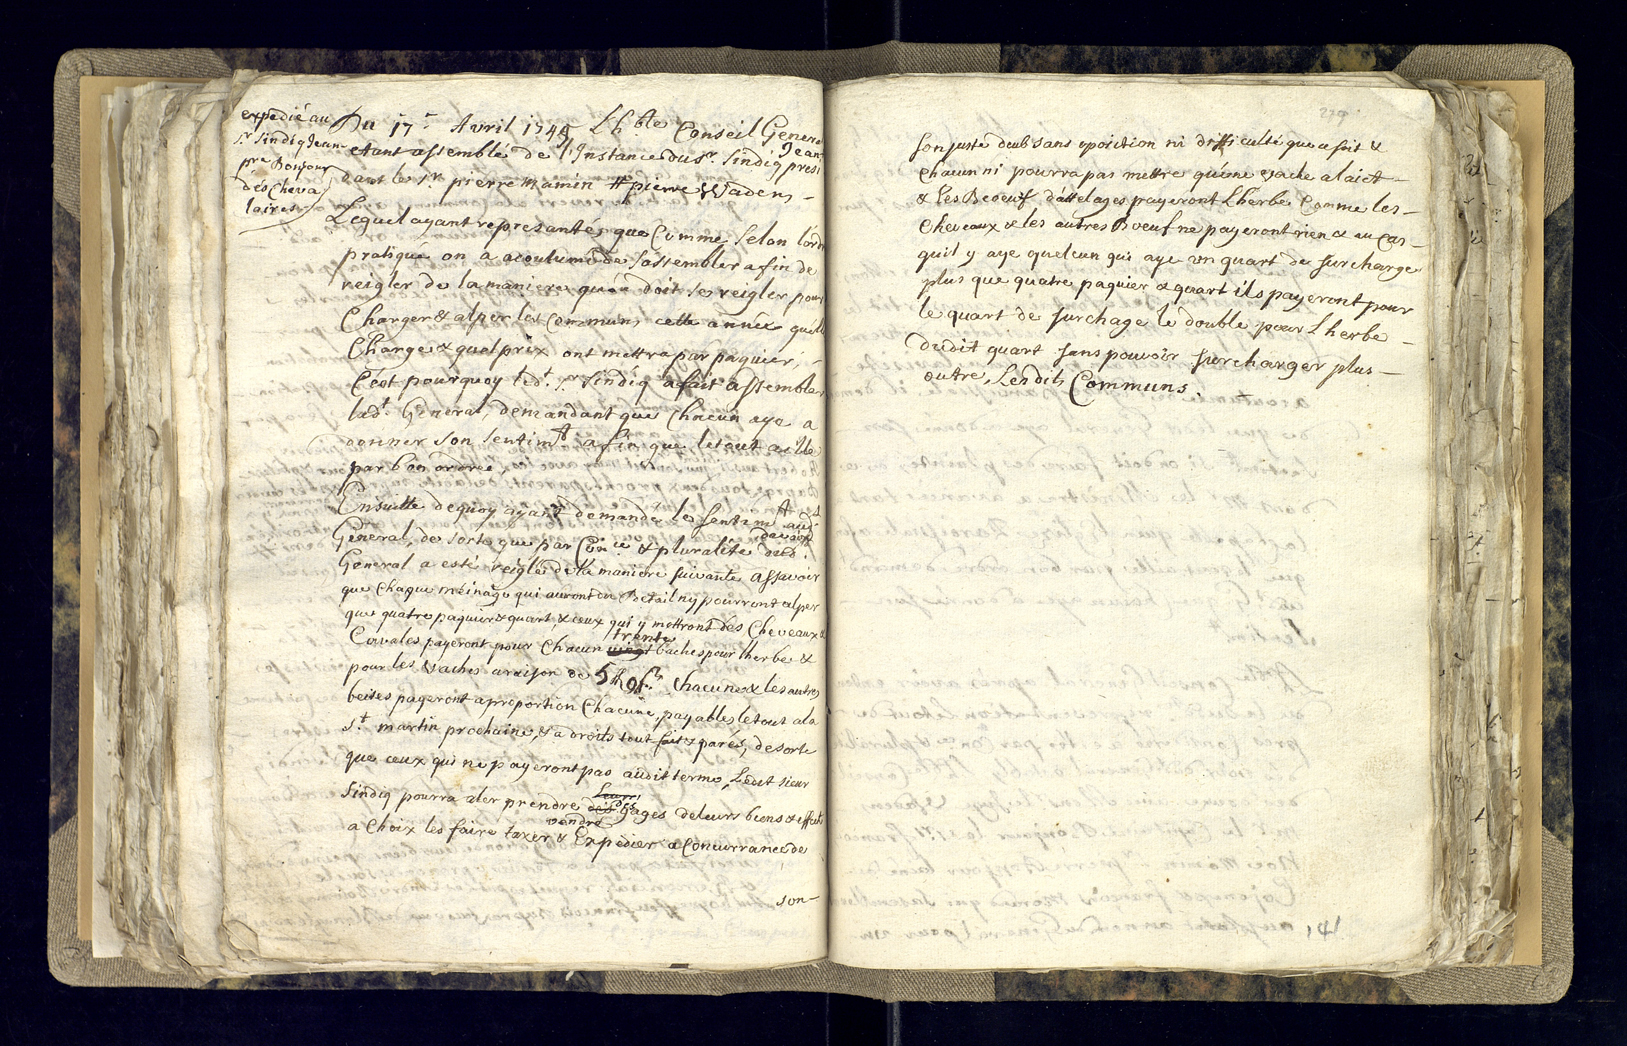 expedié au
Sr. Sindiq Jean
pre Bonjour
dés Cheva
laires
Du 17e. Avril 1749 Lh.ble Conseil General
etant assemblé de l'Instance du sr. Sindiq Jean
presidant le Sr. pierre mamin # pierre
Lequel ayant representé, que Comme Selon lordre
pratiqué on a acoutumé de Sassembler afin de
reigler de la maniere quon doit les reigler pour
Charger & alper les Communs cette année quelle
Charge & quel prix ont mettra par paquier,
Cest pourquoy led.t sr. Sindiq a fait assembler
lad.t General, demandant que Chacun aye a
donner son sentim.t afin que le tout aille
par bon ordre,
Ensuitte dequoy ayant demandé les sentim.t aud.t
General, de sorte que par Con.ce & pluralité dud.
General a esté reiglé de la maniere suivante assavoir
que Chaque meinage qui auront du Betail ny pourront alper
que quatre paquier & quart & ceux qui y mettront des Cheveaux &
Cavales payeront pour Chacun trente baches pour lherbe &
pour les vaches a raison de Chacune & les autres
betes payeront a proportion Chacune, payables le tout a la
St. martin prochaine, & a droits tout fait & parés, de sorte
que ceux qui ne payeront pas audit terme, Ledit sieur
Sindiq pourra aler prendre des gages de leurs biens & effects
vendre
a Choix les faire taxer & Expedier a Concurrance de
son
279
son juste deub sans oposition ni difficulté que a fait &
Chacun ni pourra pas mettre qu'une vache a laict
& Les Boeuf d'attelages payeront Lherbe Comme les
Cheveaux & les autres Boeuf ne payeront rien & au cas
quil y aye quelcun qui aye un quart de surcharge
plus que quatre paquier & quart ils payeront pour
le quart de surchage le double pour Lherbe
dudit quart sans pouvoir surcharger plus
outre, Lesdits Communs.
141